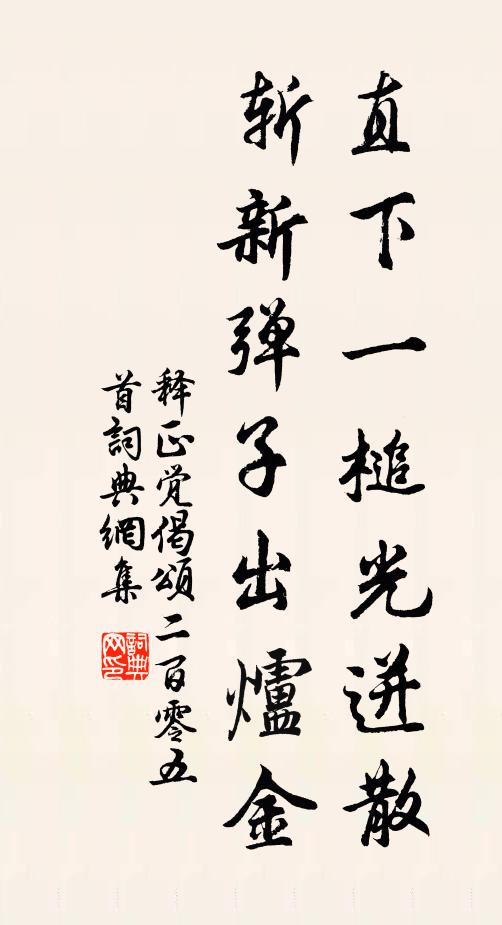 直下一槌光迸散
斩新弹子出爐金
释正觉偈頌二百零五
首詞典網集
詞典
网印